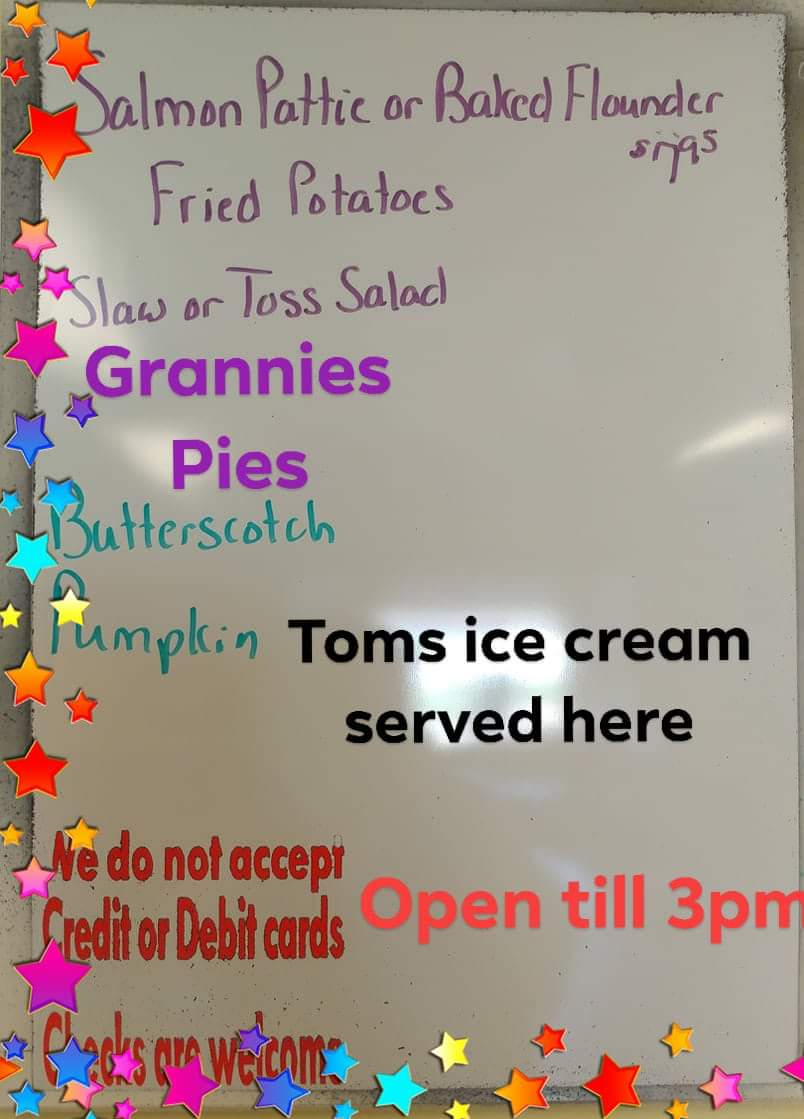 Salmon Pattie or Baked Flounder
Fried Potatoes
Slaw or Toss Salad
Grannies
Pies
Butterscotch
Pumpkin
Toms ice cream
served here
We do not accept
Credit or Debit cards
Open till 3pm
Checks are welcome